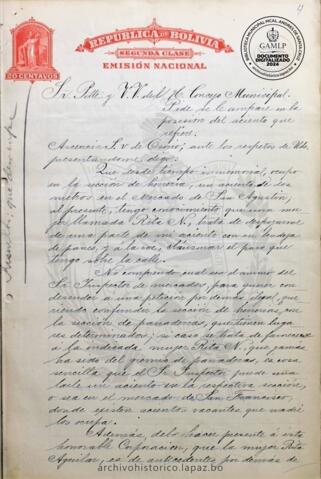 4
REPÚBLICA DE BOLIVIA
SEGUNDA CLASE
EMISIÓN NACIONAL
20 CENTAVOS
BIBLIOTECA MUNICIPAL MCAL. ANDRÉS DE SANTA CRUZ
GAMLP
DOCUMENTO
DIGITALIZADO
2024
Sr. Pdte. y V.V. del H. Concejo Municipal.
Pide se la ampare en la
posesión del asiento que
refiere.
Ascencia S. v de Osorio, ante los respetos de Uds.
presentándome digo:
Que desde tiempo inmemorial, ocupo
en la sección de un asiento de dos
metros en el Mercado de San Agustín;
al presente, tengo conocimiento que una mu-
jer llamada Rita N., trata de
de una parte de mi asiento con sus bandejas
de panes, y á la vez, el paso que
tengo sobre la calle.
No comprendo cual sea el animo del
Sr. Inspector de mercados, para querer con-
descender a una petición por demás ilegal, que
riendo confundir la sección de con
la sección de panaderas, que tienen lugar
es determinado; si caso se trata de favorecer
a la indicada, mujer Rita N. que jamás
ha sido del gremio de panaderas, es cosa
sencilla que el Sr. Inspector puede seña
larle un asiento en la respectiva sección,
o sea en el mercado de San Francisco,
donde existen asientos vacantes que nadie
los ocupa.
Además, debo hacer presente á esta
honorable Corporación, que la mujer Rita
Aguilar, es de antecedentes por demás de
archivohistorico.lapaz.bo